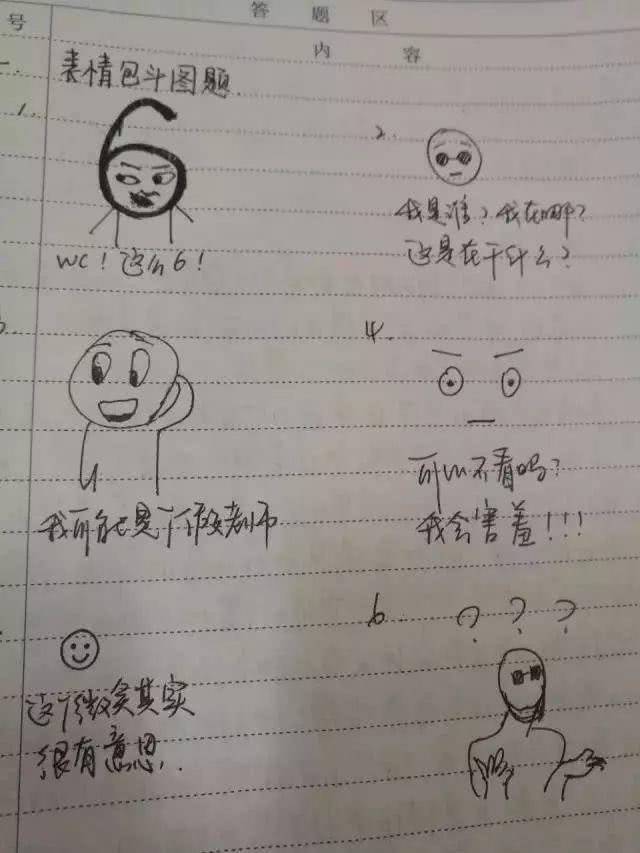 答 题 区
号 内 容
一. 表情包斗图题.
1.
WC！这么6！
2.
我是谁？我在哪？
这是在干什么？
3.
我可能是个假老师
4.
可以不看吗？
我会害羞！！！
这个微笑其实
很有意思.
6. ? ? ?